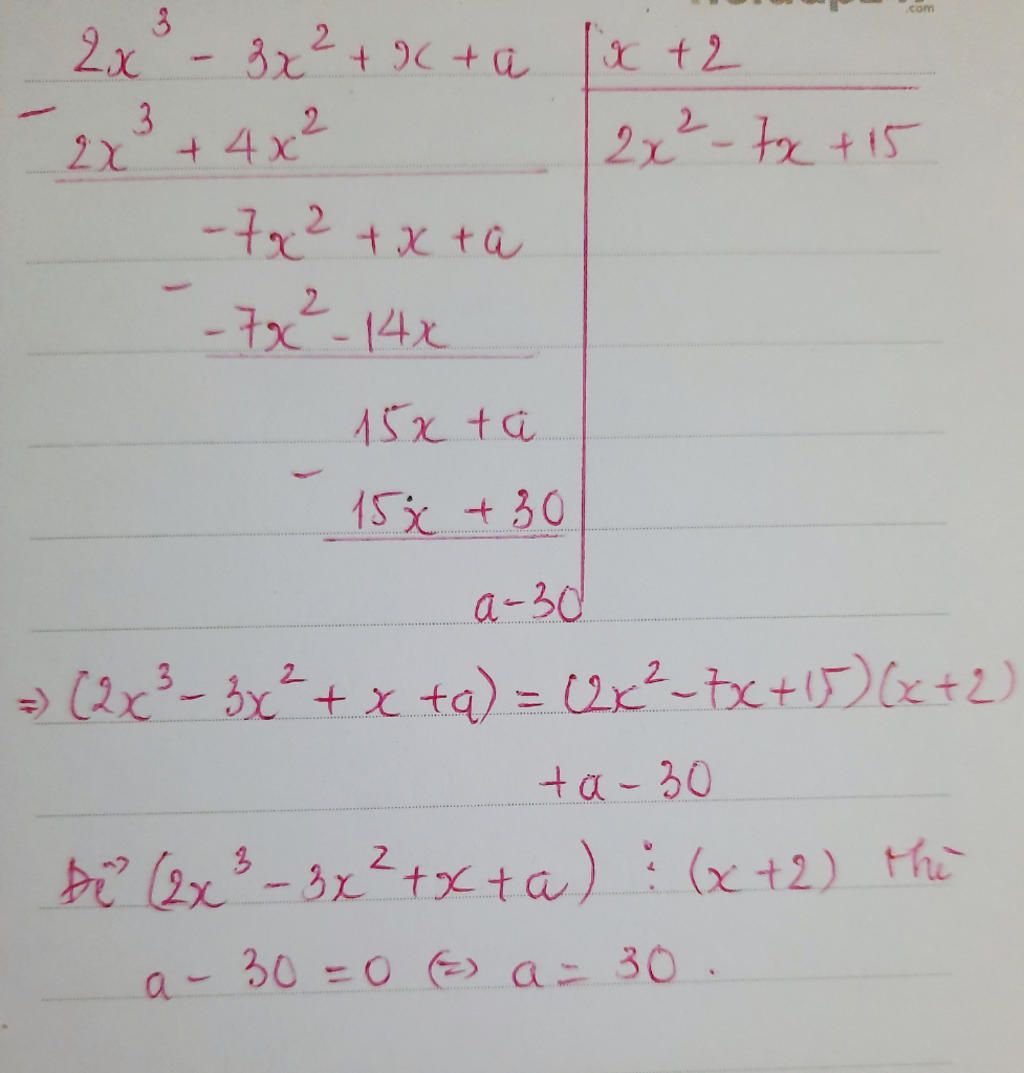 .com
2x³ - 3x² + x + a | x + 2
- 2x³ + 4x² | 2x² - 7x + 15
-7x² + x + a
- -7x² - 14x
15x + a
- 15x + 30
a - 30
=> (2x³ - 3x² + x + a) = (2x² - 7x + 15)(x + 2)
+ a - 30
Để (2x³ - 3x² + x + a) ⋮ (x + 2) thì
a - 30 = 0 <=> a = 30.